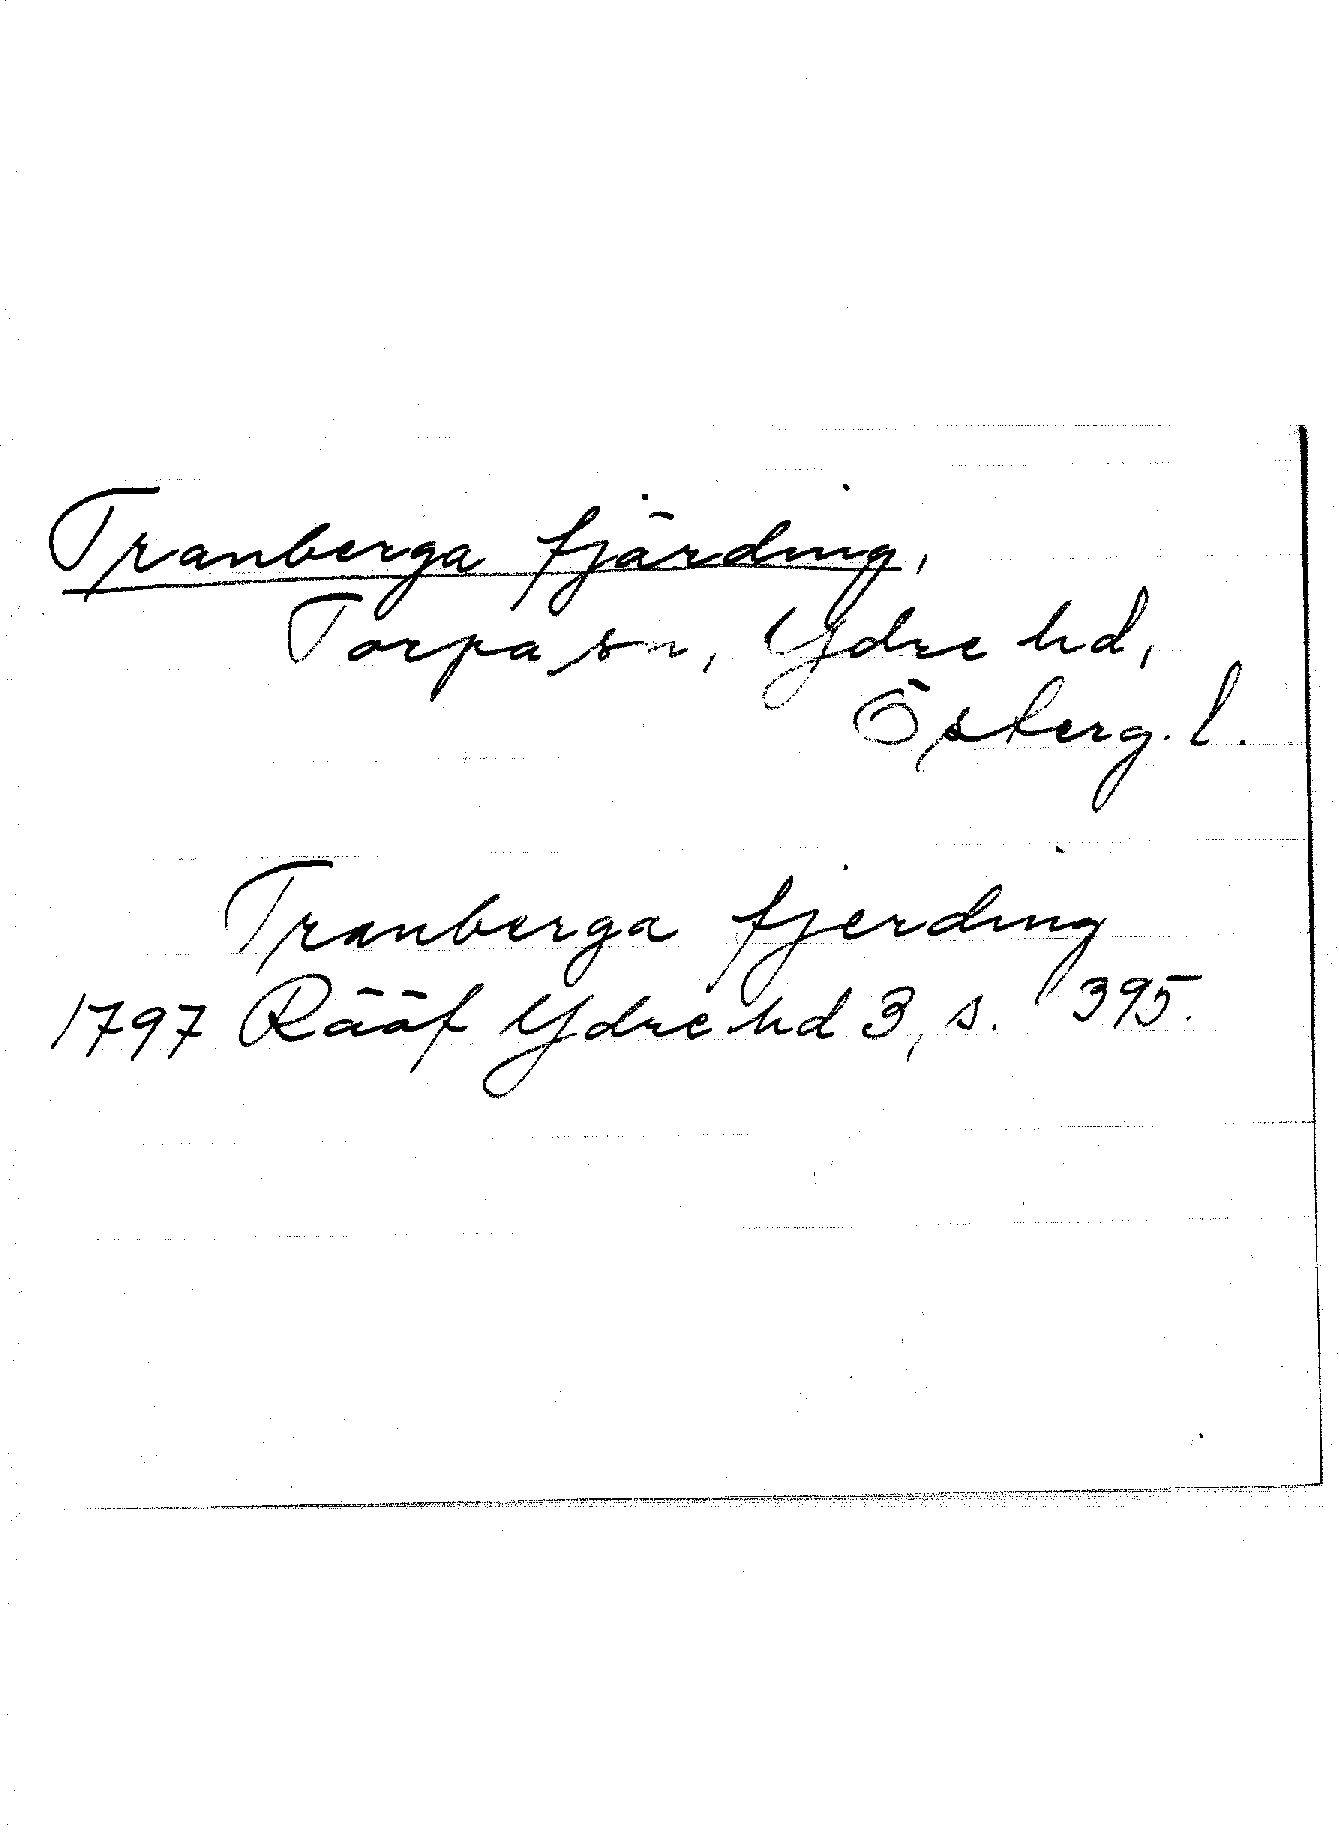 Tranberga fjärding,
Torpa sn, Ydre hd,
Österg. l.
Tranberga fjerding
1797 Rääf Ydre hd 3, s. 395.